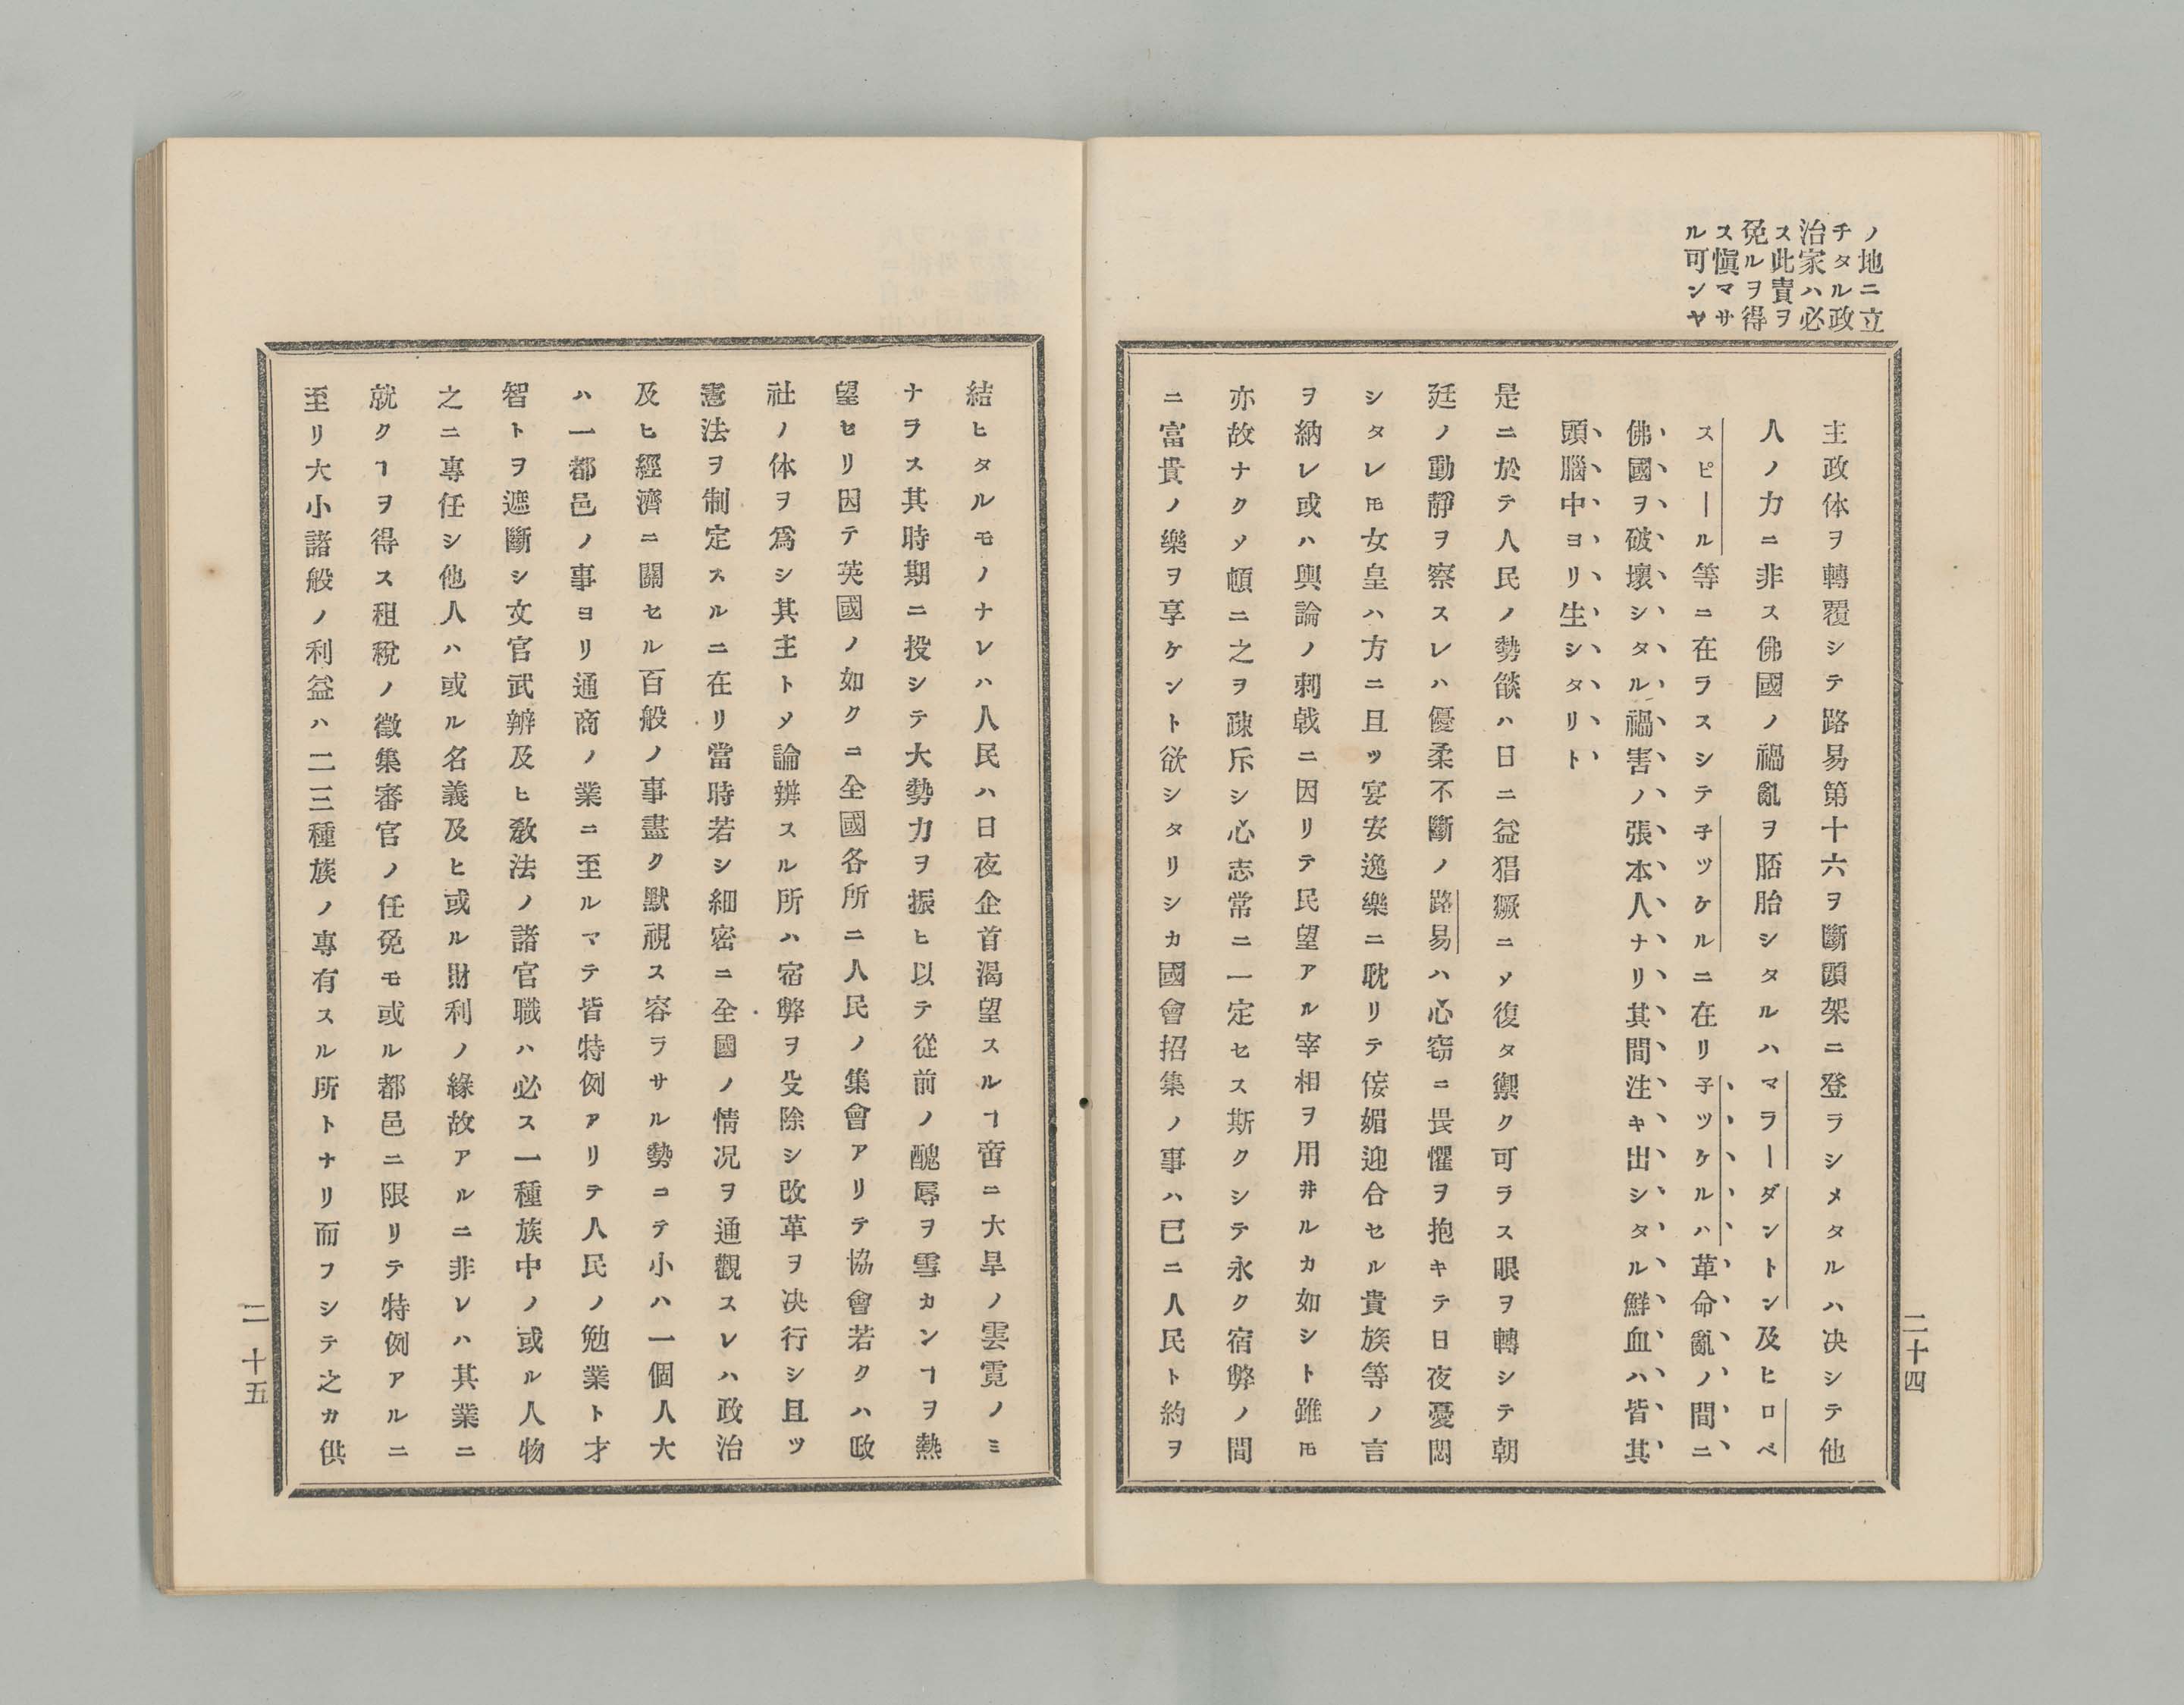 ノ地ニ立
チタル政
治家ハ必
ス此責ヲ
免ルヲ得
ス愼マサ
ル可ンヤ
主政体ヲ轉覆シテ路易第十六ヲ斷頭架ニ登ラシメタルハ决シテ他
人ノ力ニ非ス佛國ノ禍亂ヲ胚胎シタルハマラーダントン及ヒロベ
スピール等ニ在ラスシテ子ツケルニ在リ子ツケルハ革命亂ノ間ニ
佛國ヲ破壞シタル禍害ノ張本人ナリ其間注キ出シタル鮮血ハ皆其
頭腦中ヨリ生シタリト
是ニ於テ人民ノ勢燄ハ日ニ益猖獗ニメ復タ禦ク可ラス眼ヲ轉シテ朝
廷ノ動靜ヲ察スレハ優柔不斷ノ路易ハ心窃ニ畏懼ヲ抱キテ日夜憂悶
シタレ𪜈女皇ハ方ニ且ツ宴安逸樂ニ耽リテ侫媚迎合セル貴族等ノ言
ヲ納レ或ハ輿論ノ刺戟ニ因リテ民望アル宰相ヲ用井ルカ如シト雖𪜈
亦故ナクメ頓ニ之ヲ疎斥シ心志常ニ一定セス斯クシテ永ク宿弊ノ間
ニ富貴ノ樂ヲ享ケント欲シタリシカ國會招集ノ事ハ已ニ人民ト約ヲ
二十四
結ヒタルモノナレハ人民ハ日夜企首渴望スルヿ啻ニ大旱ノ雲霓ノミ
ナラス其時期ニ投シテ大勢力ヲ振ヒ以テ從前ノ醜辱ヲ雪カンヿヲ熱
望セリ因テ英國ノ如クニ全國各所ニ人民ノ集會アリテ協會若クハ政
社ノ体ヲ爲シ其主トメ論辨スル所ハ宿弊ヲ殳除シ改革ヲ决行シ且ツ
憲法ヲ制定スルニ在リ當時若シ細密ニ全國ノ情况ヲ通觀スレハ政治
及ヒ經濟ニ關セル百般ノ事盡ク默視ス容ラサル勢コテ小ハ一個人大
ハ一都邑ノ事ヨリ通商ノ業ニ至ルマテ皆特例アリテ人民ノ勉業ト才
智トヲ遮斷シ文官武辨及ヒ敎法ノ諸官職ハ必ス一種族中ノ或ル人物
之ニ專任シ他人ハ或ル名義及ヒ或ル財利ノ緣故アルニ非レハ其業ニ
就クヿヲ得ス租稅ノ徵集審官ノ任免モ或ル都邑ニ限リテ特例アルニ
至リ大小諸般ノ利益ハ二三種族ノ專有スル所トナリ而フシテ之カ供
二十五